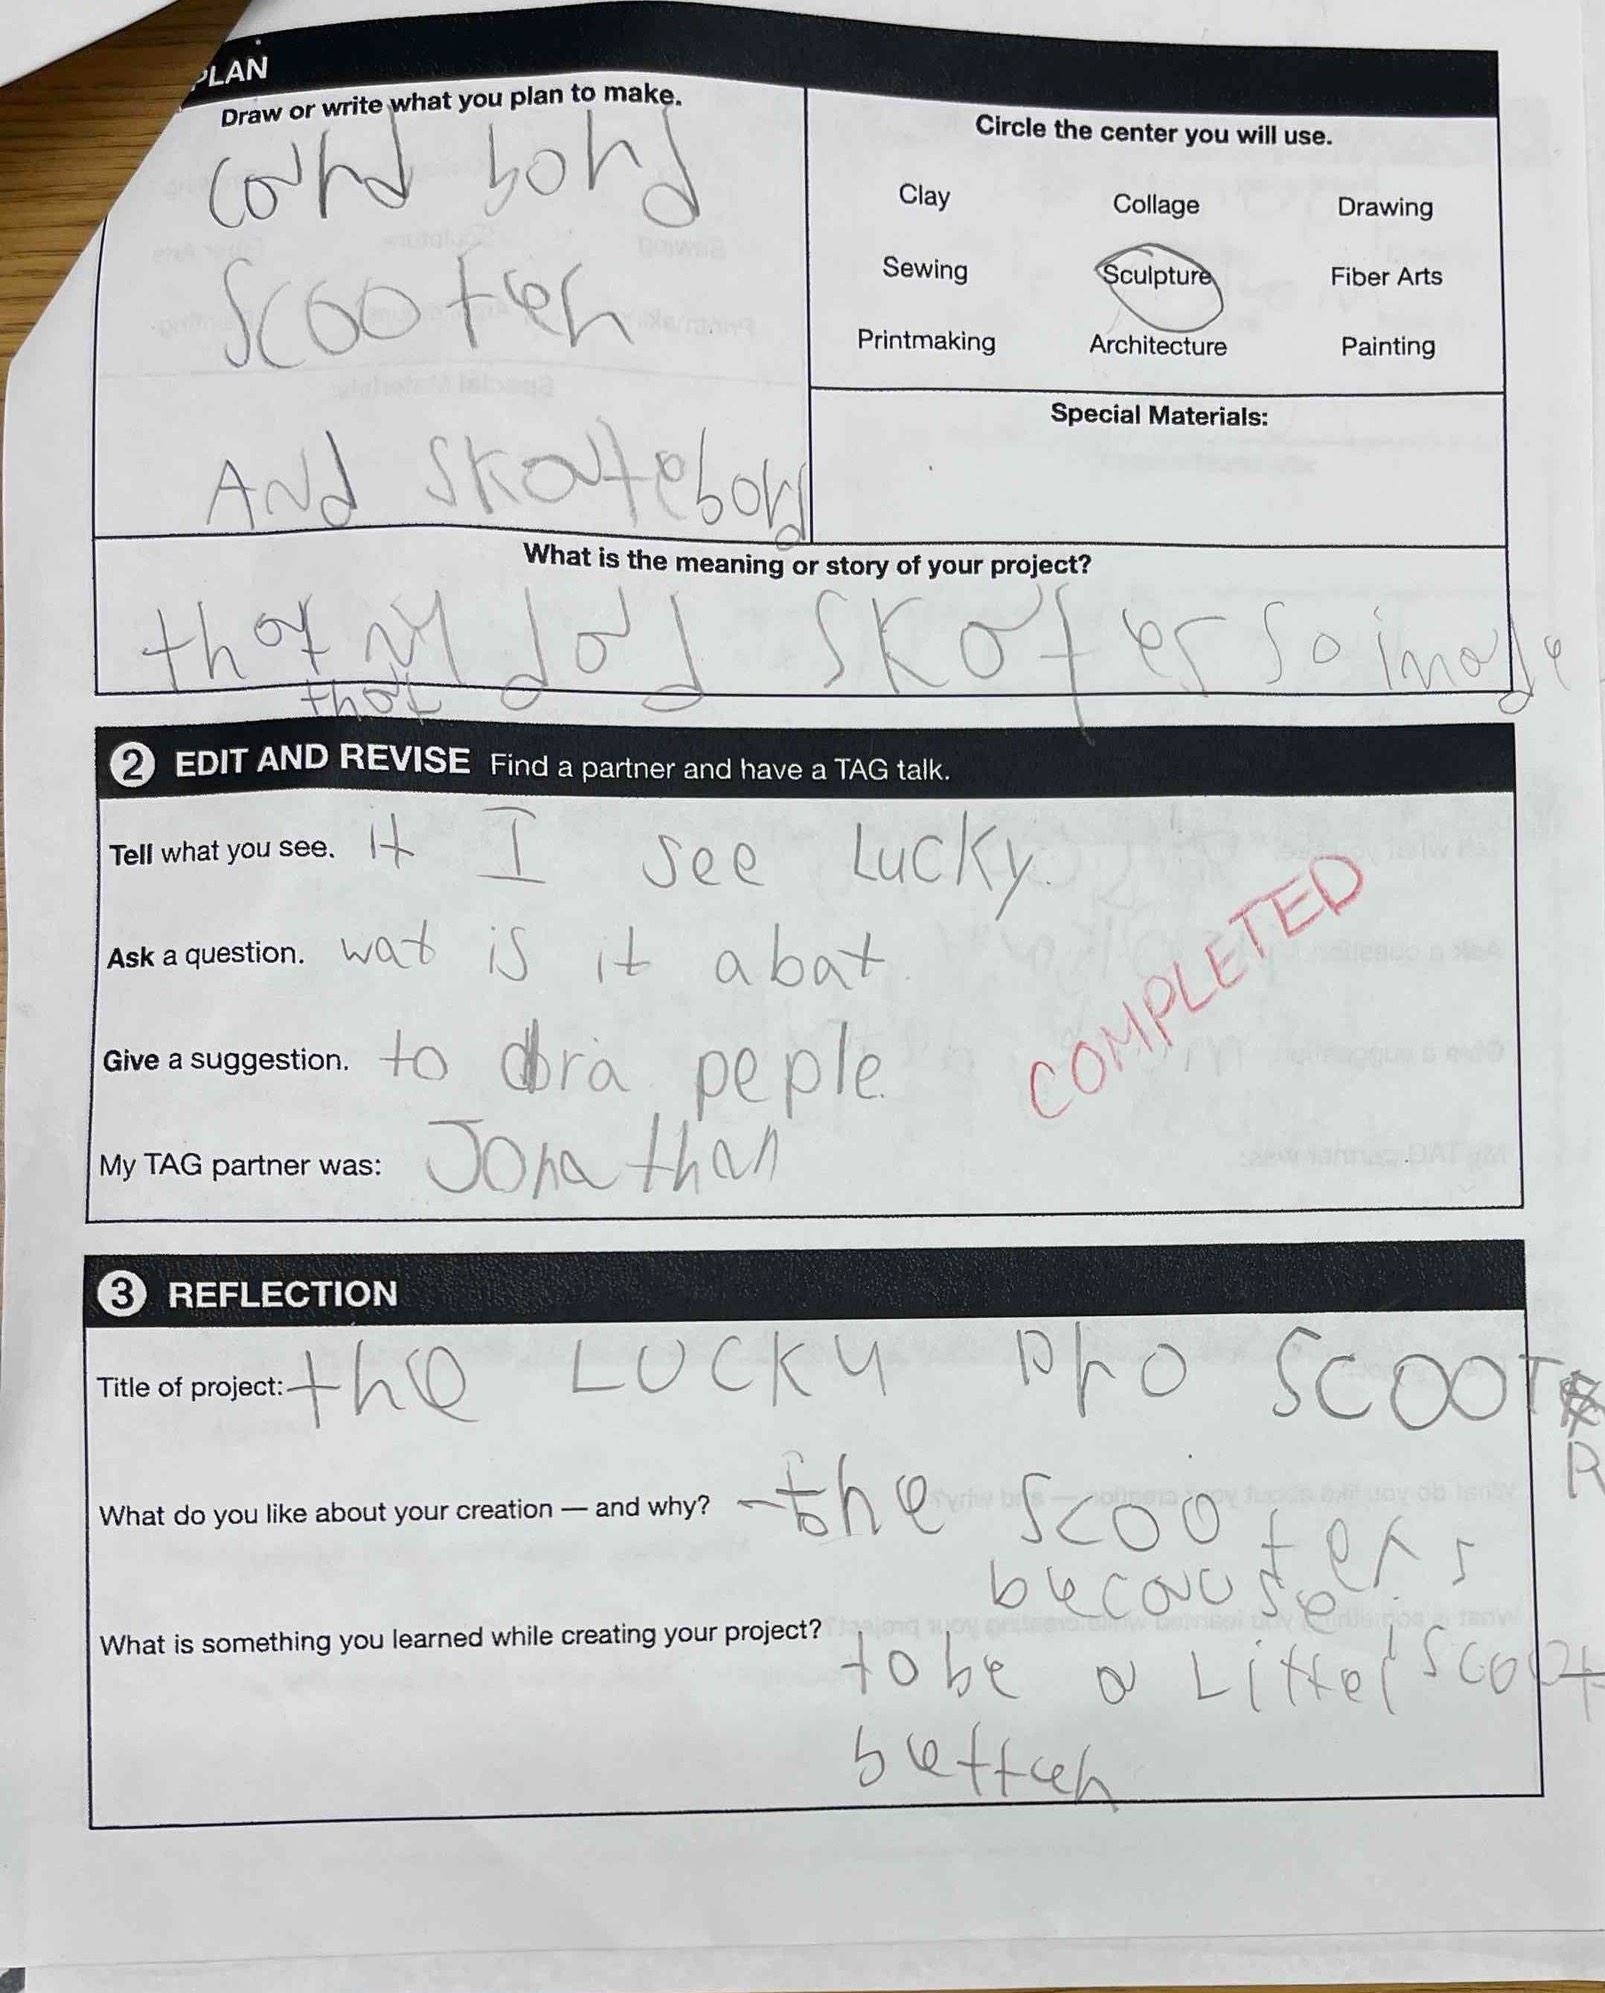 PLAN
Draw or write what you plan to make.
card bord
scooter
And skatebord
Circle the center you will use.
Clay Collage Drawing
Sewing Sculpture Fiber Arts
Printmaking Architecture Painting
Special Materials:
What is the meaning or story of your project?
that my dad skates so i made
that
2 EDIT AND REVISE Find a partner and have a TAG talk.
Tell what you see. it I see Lucky.
Ask a question. wat is it abat.
Give a suggestion. to dra peple.
My TAG partner was: Jonathan
COMPLETED
3 REFLECTION
Title of project: the LUCKY pro SCOOTE
R
What do you like about your creation — and why? the scooters
because
What is something you learned while creating your project?
to be a Littel scoot
better